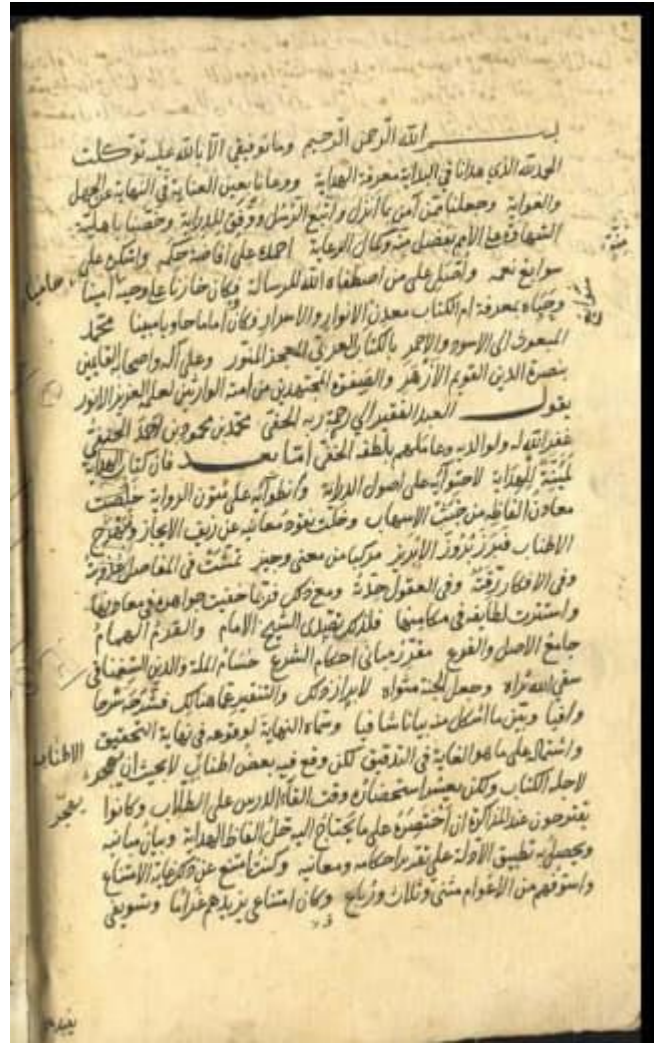 بسم الله الرحمن الرحيم وما توفيقي الا بالله عليه توكلت
الحمد لله الذي هدانا في البداية معرفة الهداية ورعانا بعين العناية في النهاية عن الجهل
والغواية وجعلنا ممن آمن بما انزل واتبع الرسل ووفق للدراية وخصنا باهلية
الشهادة على الامم بفضل منه وكمال الرعاية احمده على افاضة حكمه واشكره على
سوابغ نعمه واصلي على من اصطفاه الله للرسالة فكان خازنا على وحيه امينا
وحباه بمعرفة ام الكتاب معدن الانوار والاسرار وكان اماما حاويا مبينا محمد
المبعوث الى الاسود والاحمر بالكتاب العربي المعجز المنور وعلى آله واصحابه القايمين
بنصرة الدين القويم الازهر والصفوة المجتهدين من امته الوارثين لعلمه العزيز الانور
يقول العبد الفقير الى رحمة ربه الحفي محمد بن محمود بن احمد الحنفي
غفر الله له ولوالديه وعاملهم بلطفه الخفي اما بعد فان كتاب الهداية
لمئنة للهداية لاحتوائه على اصول الدراية وانطوائه على متون الرواية خلصت
معادن الفاظه من خبث الاسهاب وخلت نقود معانيه عن زيف الايجاز وبهرج
الاطناب فبرز بروز الابريز مركبا من معنى وجيز تمشت في المفاصل عذوبته
وفي الافكار رقته وفي العقول حدته ومع ذلك فربما خفيت جواهره في معادنها
واستترت لطايفه في مكامنها فلذلك تصدى الشيخ الامام والقرم الهمام
جامع الاصل والفرع مقرر مباني احكام الشرع حسام الملة والدين السغناقي
سقى الله ثراه وجعل الجنة مثواه لابراز ذلك والتنقير عما هنالك فشرحه شرحا
وافيا وبين ما اشكل منه بيانا شافيا وسماه النهاية لوقوعه في نهاية التحقيق
واشتماله على ما هو الغاية في التدقيق لكن وقع فيه بعض اطناب لا بحيث ان يهجر
لاجله الكتاب ولكن يعسر استحضاره وقت القاء الدرس على الطلاب وكانوا
يقترحون عند المذاكرة ان اختصره على ما يحتاج اليه حل الفاظ الهداية وبيان مبانيه
ويحصل به تطبيق الادلة على تقرير احكامه ومعانيه وكنت امتنع عن ذلك غاية الامتناع
واسوفهم من الاعوام مثنى وثلاث ورباع وكان امتناعي يزيدهم غراما وتسويفي
الاطناب
يهجر